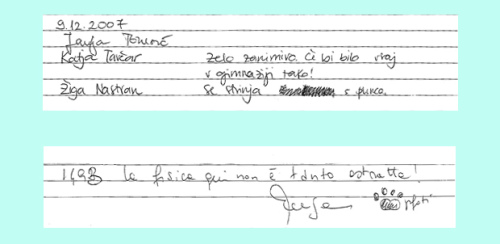 9.12.2007
Katja Tavčar Zelo zanimivo. Če bi bilo vsaj
v gimnaziji tako!
Žiga Nastran Se strinja s punco.
la fisica qui non è tanto astratta!